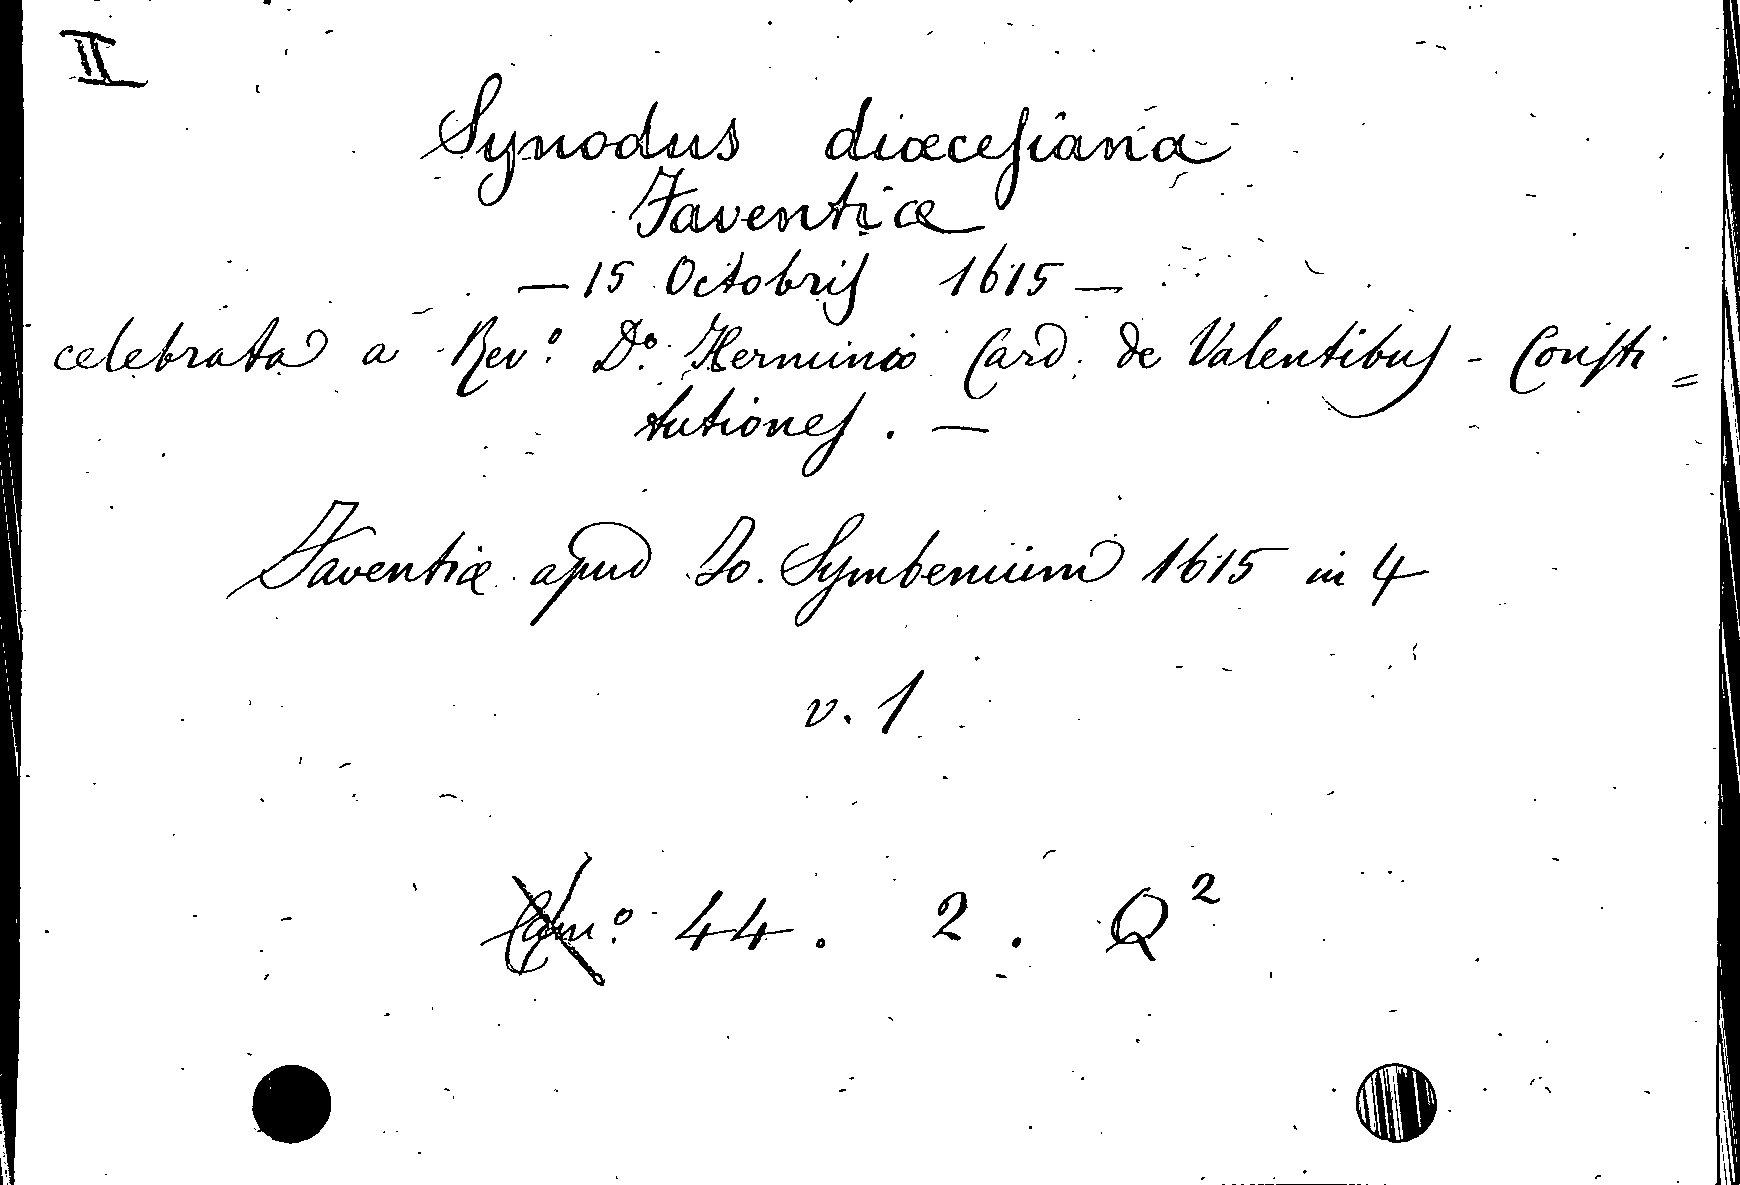 II
Synodus diœcesiana
Faventiæ
— 15 Octobris 1615 —
celebrata a Rev.º D.º Herminio Card. de Valentibus - Consti=
tutiones. —
Faventiæ apud Jo. Symbenium 1615 in 4
v. 1
44. 2. Q²